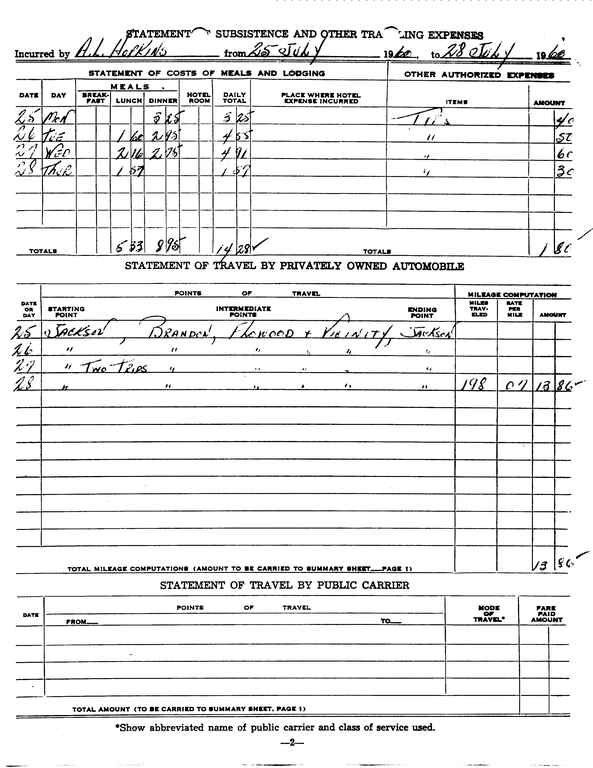 STATEMENT SUBSISTENCE AND OTHER TRA LING EXPENSES
Incurred by A.L. HOPKINS from 25 JULY 1960 to 28 JULY 1960
STATEMENT OF COSTS OF MEALS AND LODGING OTHER AUTHORIZED EXPENSES
MEALS
DATE DAY BREAK-FAST LUNCH DINNER HOTEL ROOM DAILY TOTAL PLACE WHERE HOTEL EXPENSE INCURRED ITEMS AMOUNT
25 MON 3 25 3 25 TIPS 40
26 TUE 1 60 2 95 4 55 " 50
27 WED 2 16 2 75 4 91 " 60
28 THUR 1 57 1 57 " 30
TOTALS 5 33 8 95 14 28 TOTALS 1 80
STATEMENT OF TRAVEL BY PRIVATELY OWNED AUTOMOBILE
POINTS OF TRAVEL MILEAGE COMPUTATION
DATE OR DAY STARTING POINT INTERMEDIATE POINTS ENDING POINT MILES TRAV-ELED RATE PER MILE AMOUNT
25 JACKSON, BRANDON, FLOWOOD + VICINITY, JACKSON
26 " " " " " "
27 " TWO TRIPS " " " " "
28 " " " " " " 198 07 13 86
TOTAL MILEAGE COMPUTATIONS (AMOUNT TO BE CARRIED TO SUMMARY SHEET—PAGE 1) 13 86
STATEMENT OF TRAVEL BY PUBLIC CARRIER
DATE POINTS OF TRAVEL MODE OF TRAVEL* FARE PAID AMOUNT
FROM— TO—
TOTAL AMOUNT (TO BE CARRIED TO SUMMARY SHEET, PAGE 1)
*Show abbreviated name of public carrier and class of service used.
—2—